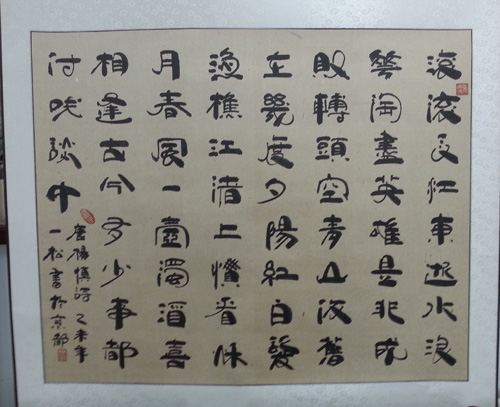 滚滚长江東逝水浪
花淘盡英雄是非成
败轉頭空青山依舊
在幾度夕陽紅白髮
渔樵江渚上慣看秋
月春風一壺濁酒喜
相逢古今多少事都
付咲談中
唐楊慎詩乙未年
一松書於京都